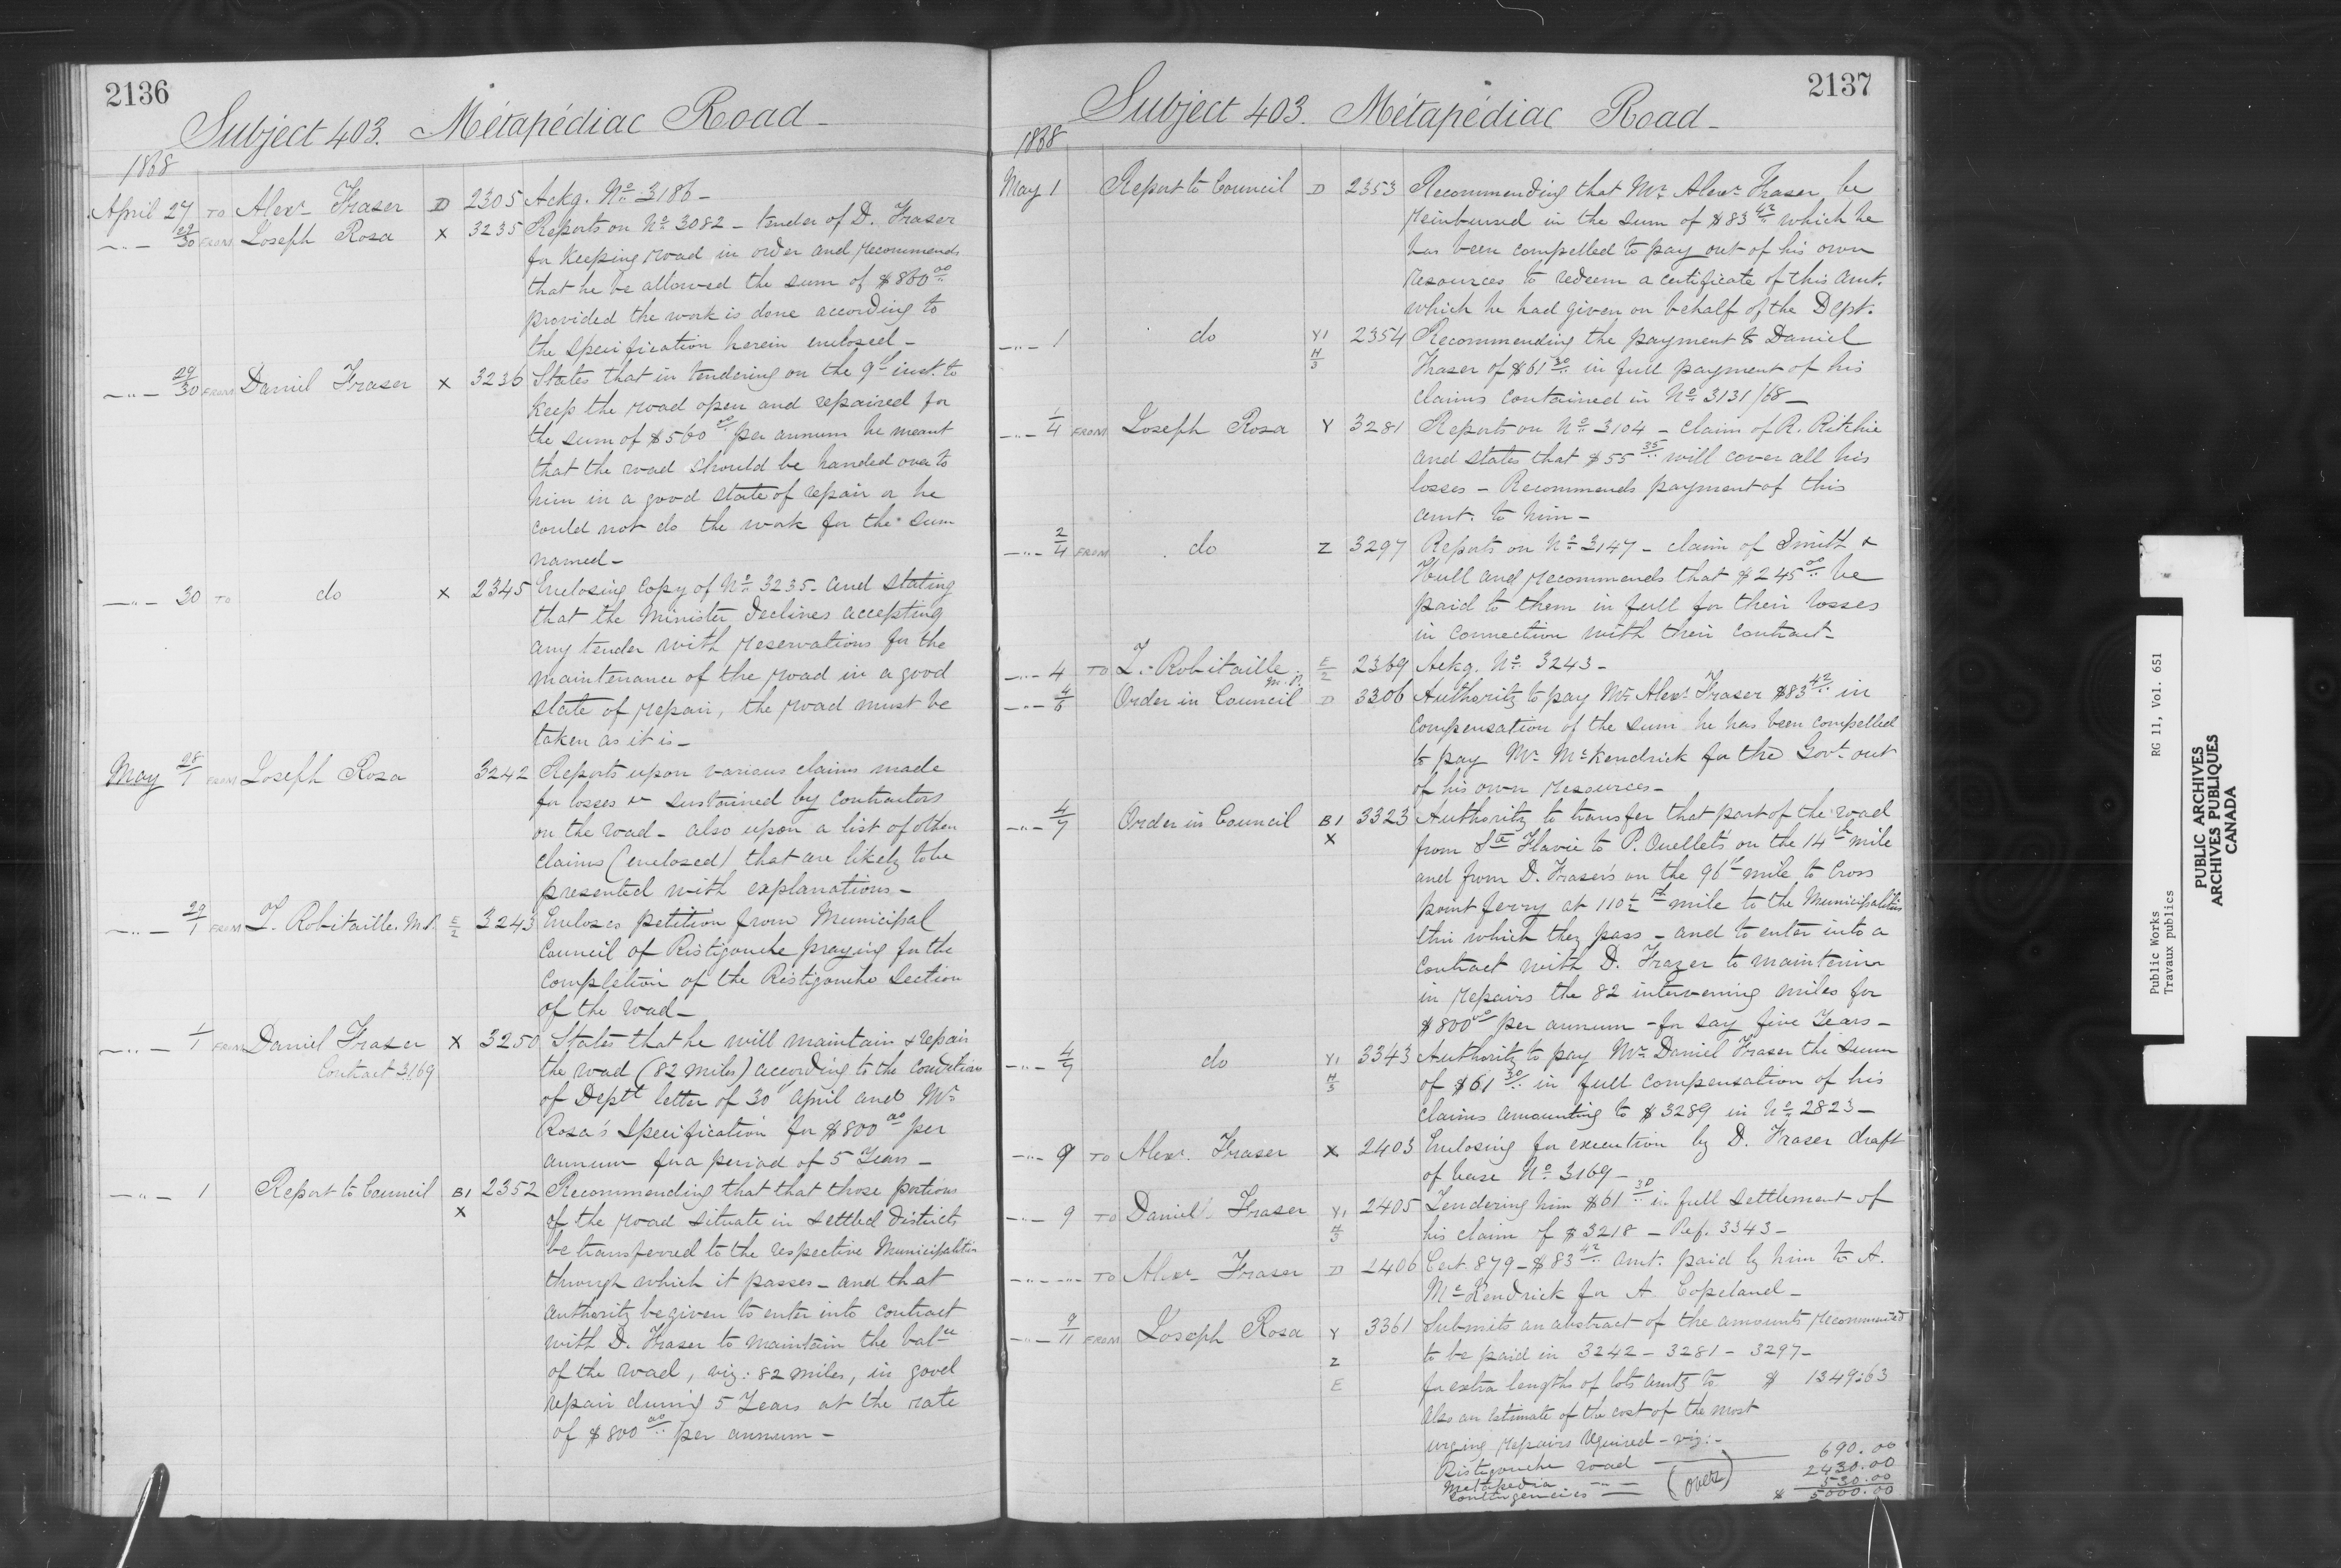 2136
Subject 403. Métapédiac Road -
1868
April 27 TO Alexr Fraser D 2305 Ackg. No. 3186 -
-"- 29/30 FROM Joseph Rosa X 3235 Reports on No. 3082 - tender of D. Fraser
for keeping road in order and recommends
that he be allowed the sum of $860.00
provided the work is done according to
the specification herein enclosed -
-"- 29/30 FROM Daniel Fraser X 3236 States that in tendering on the 9th inst. to
keep the road open and repaired for
the sum of $560.00 per annum he meant
that the road should be handed over to
him in a good state of repair or he
could not do the work for the sum
named -
-"- 30 TO do X 2345 Enclosing copy of No. 3235 - and stating
that the Minister declines accepting
any tender with reservations for the
maintenance of the road in a good
state of repair, the road must be
taken as it is -
May 28/1 FROM Joseph Rosa 3242 Reports upon various claims made
for losses &c sustained by contractors
on the road - also upon a list of other
claims (enclosed) that are likely to be
presented with explanations -
-"- 29/1 FROM T. Robitaille. M.P. E/2 3243 Encloses petition from Municipal
Council of Ristigouche praying for the
completion of the Ristigouche section
of the road -
-"- 1/1 FROM Daniel Fraser X 3250 States that he will maintain & repair
Contract 3169 the road (82 miles) according to the conditions
of Deptl letter of 30th April and Mr.
Rosa's Specification for $800.00 per
annum for a period of 5 Years -
-"- 1 Report to Council B1 X 2352 Recommending that that those portions
of the road situate in settled districts
be transferred to the respective Municipalities
through which it passes - and that
authority be given to enter into contract
with D. Fraser to maintain the balce
of the road, viz: 82 miles, in good
repair during 5 Years at the rate
of $800.00 per annum -
2137
Subject 403. Métapédiac Road -
1868
May 1 Report to Council D 2353 Recommending that Mr. Alexr Fraser be
reimbursed in the sum of $83.42 which he
has been compelled to pay out of his own
resources to redeem a certificate of this amt.
which he had given on behalf of the Dept.
-"- 1 do Y1 H/3 2354 Recommending the payment to Daniel
Fraser of $61.30 in full payment of his
claims contained in No. 3131/68 -
-"- 1/4 FROM Joseph Rosa Y 3281 Reports on No. 3104 - claim of R. Ritchie
and states that $55.35 will cover all his
losses - Recommends payment of this
amt. to him -
-"- 2/4 FROM do Z 3297 Reports on No. 3147 - claim of Smith &
Hull and recommends that $245.00 be
paid to them in full for their losses
in connection with their contract -
-"- 4 TO T. Robitaille M.P. E/2 2369 Ackg. No. 3243 -
-"- 4/6 Order in Council D 3306 Authority to pay Mr. Alexr Fraser $83.42 in
compensation of the sum he has been compelled
to pay Mr. McKendrick for the Govt. out
of his own resources -
-"- 4/7 Order in Council B1 X 3323 Authority to transfer that part of the road
from Ste Flavie to P. Ouellet's on the 14th mile
and from D. Fraser's on the 96th mile to Cross
point ferry at 110½ mile to the Municipalities
thro which they pass - and to enter into a
contract with D. Frazer to maintain
in repairs the 82 intervening miles for
$800.00 per annum - for say five Years -
-"- 4/7 do Y1 H/3 3343 Authority to pay Mr. Daniel Fraser the sum
of $61.30 in full compensation of his
claims amounting to $3289 in No. 2823 -
-"- 9 TO Alexr. Fraser X 2403 Enclosing for execution by D. Fraser draft
of lease No. 3169 -
-"- 9 TO Daniel Fraser Y1 H/3 2405 Tendering him $61.30 in full settlement of
his claim of $3218 - Ref. 3343 -
-"- -"- TO Alexr Fraser D 2406 Cert 879 - $83.42 amt. paid by him to A.
McKendrick for A. Copeland -
-"- 9/11 FROM Joseph Rosa Y Z E 3361 Submits an abstract of the amounts recommended
to be paid in 3242 - 3281 - 3297 -
for extra lengths of lots amtg to $ 1349.63
Also an estimate of the cost of the most
urging repairs required - viz: -
Ristigouche road — 690.00
Metapedia -"- 2430.00
Contingencies — (over) 530.00
$ 5000.00
Public Works RG 11, Vol. 651
Travaux publics
PUBLIC ARCHIVES
ARCHIVES PUBLIQUES
CANADA